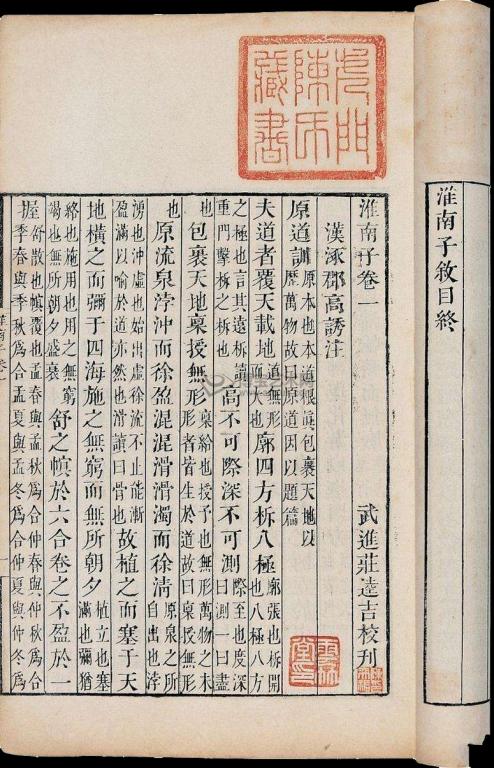 淮南子敘目終
門陳氏藏書
淮南子卷一
漢涿郡高誘注 武進莊逵吉校刊
原道訓 原本也本道根真包裹天地以歷萬物故曰原道因以題篇
夫道者覆天載地 道無形而大也 廓四方柝八極 廓張也柝開也八極八方
之極也言其遠柝讀重門擊柝之柝也 高不可際深不可測 際至也度深曰測一曰盡
也 包裹天地稟授無形 稟給也授予也無形萬物之未形者皆生於道故曰稟授無形
也 原流泉浡沖而徐盈混混滑滑濁而徐清 原泉之所自出也浡
湧也沖虛也始出虛徐流不止能漸盈滿以喻於道亦然也滑讀曰骨也 故植之而塞于天
地橫之而彌于四海施之無窮而無所朝夕 植立也塞滿也彌猶
絡也施用也用之無窮竭也無所朝夕盛衰 舒之幎於六合卷之不盈於一
握 舒散也幎覆也孟春與孟秋為合仲春與仲秋為合季春與季秋為合孟夏與孟冬為合仲夏與仲冬為合